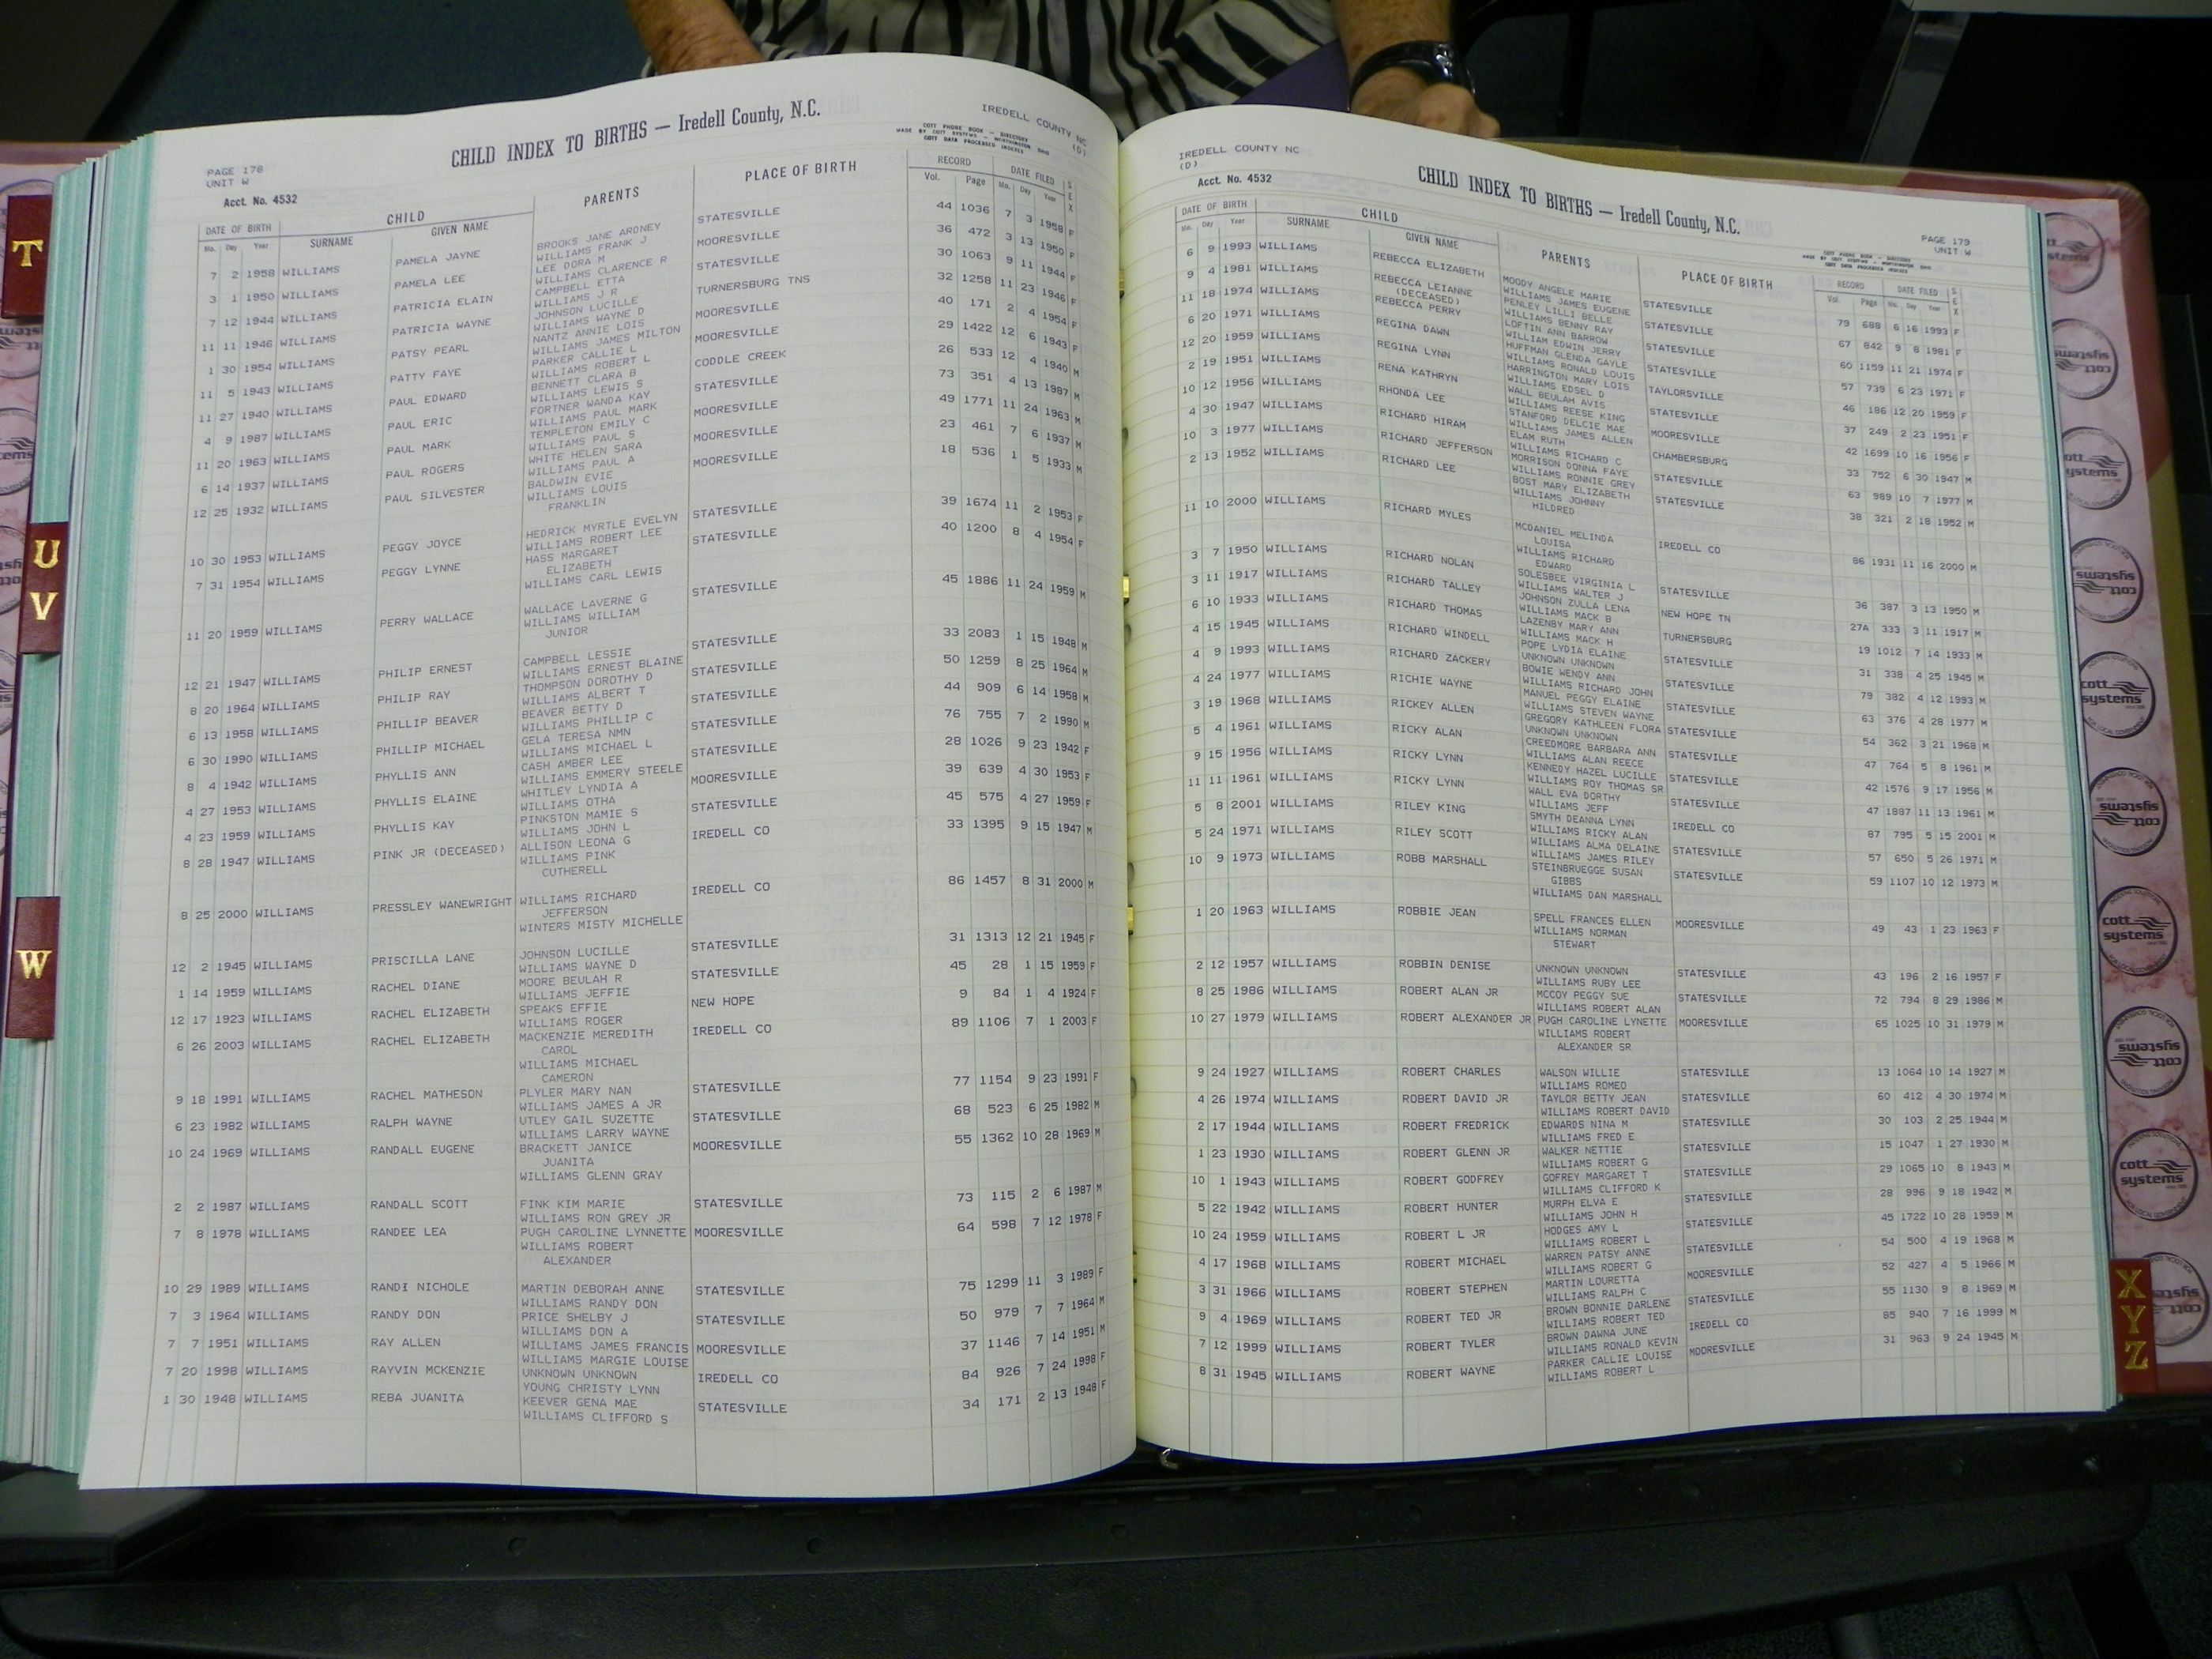 CHILD INDEX TO BIRTHS — Iredell County, N.C.
IREDELL COUNTY NC
(D)
COTT PHONE BOOK — DIRECTORY
MADE BY COTT SYSTEMS — WORTHINGTON OHIO
COTT DATA PROCESSED INDEXES
PAGE 178
UNIT W
Acct. No. 4532
DATE OF BIRTH CHILD PARENTS PLACE OF BIRTH RECORD DATE FILED SEX
Mo. Day Year SURNAME GIVEN NAME Vol. Page Mo. Day Year
7 2 1958 WILLIAMS PAMELA JAYNE BROOKS JANE ARDNEY STATESVILLE 44 1036 7 3 1958 F
WILLIAMS FRANK J
3 1 1950 WILLIAMS PAMELA LEE LEE DORA M MOORESVILLE 36 472 3 13 1950 F
WILLIAMS CLARENCE R
7 12 1944 WILLIAMS PATRICIA ELAIN CAMPBELL ETTA STATESVILLE 30 1063 9 11 1944 F
WILLIAMS J R
11 11 1946 WILLIAMS PATRICIA WAYNE JOHNSON LUCILLE TURNERSBURG TNS 32 1258 11 23 1946 F
WILLIAMS WAYNE D
1 30 1954 WILLIAMS PATSY PEARL NANTZ ANNIE LOIS MOORESVILLE 40 171 2 4 1954 F
WILLIAMS JAMES MILTON
11 5 1943 WILLIAMS PATTY FAYE PARKER CALLIE L MOORESVILLE 29 1422 12 6 1943 F
WILLIAMS ROBERT L
11 27 1940 WILLIAMS PAUL EDWARD BENNETT CLARA B CODDLE CREEK 26 533 12 4 1940 M
WILLIAMS LEWIS S
4 9 1987 WILLIAMS PAUL ERIC FORTNER WANDA KAY STATESVILLE 73 351 4 13 1987 M
WILLIAMS PAUL MARK
11 20 1963 WILLIAMS PAUL MARK TEMPLETON EMILY C MOORESVILLE 49 1771 11 24 1963 M
WILLIAMS PAUL S
6 14 1937 WILLIAMS PAUL ROGERS WHITE HELEN SARA MOORESVILLE 23 461 7 6 1937 M
WILLIAMS PAUL A
12 25 1932 WILLIAMS PAUL SILVESTER BALDWIN EVIE MOORESVILLE 18 536 1 5 1933 M
WILLIAMS LOUIS
FRANKLIN
10 30 1953 WILLIAMS PEGGY JOYCE HEDRICK MYRTLE EVELYN STATESVILLE 39 1674 11 2 1953 F
WILLIAMS ROBERT LEE
7 31 1954 WILLIAMS PEGGY LYNNE HASS MARGARET STATESVILLE 40 1200 8 4 1954 F
ELIZABETH
WILLIAMS CARL LEWIS
11 20 1959 WILLIAMS PERRY WALLACE WALLACE LAVERNE G STATESVILLE 45 1886 11 24 1959 M
WILLIAMS WILLIAM
JUNIOR
12 21 1947 WILLIAMS PHILIP ERNEST CAMPBELL LESSIE STATESVILLE 33 2083 1 15 1948 M
WILLIAMS ERNEST BLAINE
8 20 1964 WILLIAMS PHILIP RAY THOMPSON DOROTHY D STATESVILLE 50 1259 8 25 1964 M
WILLIAMS ALBERT T
6 13 1958 WILLIAMS PHILLIP BEAVER BEAVER BETTY D STATESVILLE 44 909 6 14 1958 M
WILLIAMS PHILLIP C
6 30 1990 WILLIAMS PHILLIP MICHAEL GELA TERESA NMN STATESVILLE 76 755 7 2 1990 M
WILLIAMS MICHAEL L
8 4 1942 WILLIAMS PHYLLIS ANN CASH AMBER LEE STATESVILLE 28 1026 9 23 1942 F
WILLIAMS EMMERY STEELE
4 27 1953 WILLIAMS PHYLLIS ELAINE WHITLEY LYNDIA A MOORESVILLE 39 639 4 30 1953 F
WILLIAMS OTHA
4 23 1959 WILLIAMS PHYLLIS KAY PINKSTON MAMIE S STATESVILLE 45 575 4 27 1959 F
WILLIAMS JOHN L
8 28 1947 WILLIAMS PINK JR (DECEASED) ALLISON LEONA G IREDELL CO 33 1395 9 15 1947 M
WILLIAMS PINK
CUTHERELL
8 25 2000 WILLIAMS PRESSLEY WANEWRIGHT WILLIAMS RICHARD IREDELL CO 86 1457 8 31 2000 M
JEFFERSON
WINTERS MISTY MICHELLE
12 2 1945 WILLIAMS PRISCILLA LANE JOHNSON LUCILLE STATESVILLE 31 1313 12 21 1945 F
WILLIAMS WAYNE D
1 14 1959 WILLIAMS RACHEL DIANE MOORE BEULAH R STATESVILLE 45 28 1 15 1959 F
WILLIAMS JEFFIE
12 17 1923 WILLIAMS RACHEL ELIZABETH SPEAKS EFFIE NEW HOPE 9 84 1 4 1924 F
WILLIAMS ROGER
6 26 2003 WILLIAMS RACHEL ELIZABETH MACKENZIE MEREDITH IREDELL CO 89 1106 7 1 2003 F
CAROL
WILLIAMS MICHAEL
CAMERON
9 18 1991 WILLIAMS RACHEL MATHESON PLYLER MARY NAN STATESVILLE 77 1154 9 23 1991 F
WILLIAMS JAMES A JR
6 23 1982 WILLIAMS RALPH WAYNE UTLEY GAIL SUZETTE STATESVILLE 68 523 6 25 1982 M
WILLIAMS LARRY WAYNE
10 24 1969 WILLIAMS RANDALL EUGENE BRACKETT JANICE MOORESVILLE 55 1362 10 28 1969 M
JUANITA
WILLIAMS GLENN GRAY
2 2 1987 WILLIAMS RANDALL SCOTT FINK KIM MARIE STATESVILLE 73 115 2 6 1987 M
WILLIAMS RON GREY JR
7 8 1978 WILLIAMS RANDEE LEA PUGH CAROLINE LYNNETTE MOORESVILLE 64 598 7 12 1978 F
WILLIAMS ROBERT
ALEXANDER
10 29 1989 WILLIAMS RANDI NICHOLE MARTIN DEBORAH ANNE STATESVILLE 75 1299 11 3 1989 F
WILLIAMS RANDY DON
7 3 1964 WILLIAMS RANDY DON PRICE SHELBY J STATESVILLE 50 979 7 7 1964 M
WILLIAMS DON A
7 7 1951 WILLIAMS RAY ALLEN WILLIAMS JAMES FRANCIS MOORESVILLE 37 1146 7 14 1951 M
WILLIAMS MARGIE LOUISE
7 20 1998 WILLIAMS RAYVIN MCKENZIE UNKNOWN UNKNOWN IREDELL CO 84 926 7 24 1998 F
YOUNG CHRISTY LYNN
1 30 1948 WILLIAMS REBA JUANITA KEEVER GENA MAE STATESVILLE 34 171 2 13 1948 F
WILLIAMS CLIFFORD S
IREDELL COUNTY NC
(D)
Acct. No. 4532
CHILD INDEX TO BIRTHS — Iredell County, N.C.
PAGE 179
UNIT W
COTT PHONE BOOK — DIRECTORY
MADE BY COTT SYSTEMS — WORTHINGTON OHIO
COTT DATA PROCESSED INDEXES
DATE OF BIRTH CHILD PARENTS PLACE OF BIRTH RECORD DATE FILED SEX
Mo. Day Year SURNAME GIVEN NAME Vol. Page Mo. Day Year
6 9 1993 WILLIAMS REBECCA ELIZABETH MOODY ANGELE MARIE STATESVILLE 79 688 6 16 1993 F
WILLIAMS JAMES EUGENE
9 4 1981 WILLIAMS REBECCA LEIANNE PENLEY LILLI BELLE STATESVILLE 67 842 9 8 1981 F
(DECEASED) WILLIAMS BENNY RAY
11 18 1974 WILLIAMS REBECCA PERRY LOFTIN ANN BARROW STATESVILLE 60 1159 11 21 1974 F
WILLIAM EDWIN JERRY
6 20 1971 WILLIAMS REGINA DAWN HUFFMAN GLENDA GAYLE TAYLORSVILLE 57 739 6 23 1971 F
WILLIAMS RONALD LOUIS
12 20 1959 WILLIAMS REGINA LYNN HARRINGTON MARY LOIS STATESVILLE 46 186 12 20 1959 F
WILLIAMS EDSEL D
2 19 1951 WILLIAMS RENA KATHRYN WALL BEULAH AVIS MOORESVILLE 37 249 2 23 1951 F
WILLIAMS REESE KING
10 12 1956 WILLIAMS RHONDA LEE STANFORD DELCIE MAE CHAMBERSBURG 42 1699 10 16 1956 F
WILLIAMS JAMES ALLEN
4 30 1947 WILLIAMS RICHARD HIRAM ELAM RUTH STATESVILLE 33 752 6 30 1947 M
WILLIAMS RICHARD C
10 3 1977 WILLIAMS RICHARD JEFFERSON MORRISON DONNA FAYE STATESVILLE 63 989 10 7 1977 M
WILLIAMS RONNIE GREY
2 13 1952 WILLIAMS RICHARD LEE BOST MARY ELIZABETH 38 321 2 18 1952 M
WILLIAMS JOHNNY
HILDRED
11 10 2000 WILLIAMS RICHARD MYLES MCDANIEL MELINDA IREDELL CO 86 1931 11 16 2000 M
LOUISA
WILLIAMS RICHARD
EDWARD
3 7 1950 WILLIAMS RICHARD NOLAN SOLESBEE VIRGINIA L STATESVILLE 36 387 3 13 1950 M
WILLIAMS WALTER J
3 11 1917 WILLIAMS RICHARD TALLEY JOHNSON ZULLA LENA NEW HOPE TN 27A 333 3 11 1917 M
WILLIAMS MACK B
6 10 1933 WILLIAMS RICHARD THOMAS LAZENBY MARY ANN TURNERSBURG 19 1012 7 14 1933 M
WILLIAMS MACK H
4 15 1945 WILLIAMS RICHARD WINDELL POPE LYDIA ELAINE STATESVILLE 31 338 4 25 1945 M
UNKNOWN UNKNOWN
4 9 1993 WILLIAMS RICHARD ZACKERY BOWIE WENDY ANN STATESVILLE 79 382 4 12 1993 M
WILLIAMS RICHARD JOHN
4 24 1977 WILLIAMS RICHIE WAYNE MANUEL PEGGY ELAINE STATESVILLE 63 376 4 28 1977 M
WILLIAMS STEVEN WAYNE
3 19 1968 WILLIAMS RICKEY ALLEN GREGORY KATHLEEN FLORA STATESVILLE 54 362 3 21 1968 M
UNKNOWN UNKNOWN
5 4 1961 WILLIAMS RICKY ALAN CREEDMORE BARBARA ANN STATESVILLE 47 764 5 8 1961 M
WILLIAMS ALAN REECE
9 15 1956 WILLIAMS RICKY LYNN KENNEDY HAZEL LUCILLE STATESVILLE 42 1576 9 17 1956 M
WILLIAMS ROY THOMAS SR
11 11 1961 WILLIAMS RICKY LYNN WALL EVA DORTHY STATESVILLE 47 1887 11 13 1961 M
WILLIAMS JEFF
5 8 2001 WILLIAMS RILEY KING SMYTH DEANNA LYNN IREDELL CO 87 795 5 15 2001 M
WILLIAMS RICKY ALAN
5 24 1971 WILLIAMS RILEY SCOTT WILLIAMS ALMA DELAINE STATESVILLE 57 650 5 26 1971 M
WILLIAMS JAMES RILEY
10 9 1973 WILLIAMS ROBB MARSHALL STEINBRUEGGE SUSAN STATESVILLE 59 1107 10 12 1973 M
GIBBS
WILLIAMS DAN MARSHALL
1 20 1963 WILLIAMS ROBBIE JEAN SPELL FRANCES ELLEN MOORESVILLE 49 43 1 23 1963 F
WILLIAMS NORMAN
STEWART
2 12 1957 WILLIAMS ROBBIN DENISE UNKNOWN UNKNOWN STATESVILLE 43 196 2 16 1957 F
WILLIAMS RUBY LEE
8 25 1986 WILLIAMS ROBERT ALAN JR MCCOY PEGGY SUE STATESVILLE 72 794 8 29 1986 M
WILLIAMS ROBERT ALAN
10 27 1979 WILLIAMS ROBERT ALEXANDER JR PUGH CAROLINE LYNETTE MOORESVILLE 65 1025 10 31 1979 M
WILLIAMS ROBERT
ALEXANDER SR
9 24 1927 WILLIAMS ROBERT CHARLES WALSON WILLIE STATESVILLE 13 1064 10 14 1927 M
WILLIAMS ROMEO
4 26 1974 WILLIAMS ROBERT DAVID JR TAYLOR BETTY JEAN STATESVILLE 60 412 4 30 1974 M
WILLIAMS ROBERT DAVID
2 17 1944 WILLIAMS ROBERT FREDRICK EDWARDS NINA M STATESVILLE 30 103 2 25 1944 M
WILLIAMS FRED E
1 23 1930 WILLIAMS ROBERT GLENN JR WALKER NETTIE STATESVILLE 15 1047 1 27 1930 M
WILLIAMS ROBERT G
10 1 1943 WILLIAMS ROBERT GODFREY GOFREY MARGARET T STATESVILLE 29 1065 10 8 1943 M
WILLIAMS CLIFFORD K
5 22 1942 WILLIAMS ROBERT HUNTER MURPH ELVA E STATESVILLE 28 996 9 18 1942 M
WILLIAMS JOHN H
10 24 1959 WILLIAMS ROBERT L JR HODGES AMY L STATESVILLE 45 1722 10 28 1959 M
WILLIAMS ROBERT L
4 17 1968 WILLIAMS ROBERT MICHAEL WARREN PATSY ANNE STATESVILLE 54 500 4 19 1968 M
WILLIAMS ROBERT G
3 31 1966 WILLIAMS ROBERT STEPHEN MARTIN LOURETTA MOORESVILLE 52 427 4 5 1966 M
WILLIAMS RALPH C
9 4 1969 WILLIAMS ROBERT TED JR BROWN BONNIE DARLENE STATESVILLE 55 1130 9 8 1969 M
WILLIAMS ROBERT TED
7 12 1999 WILLIAMS ROBERT TYLER BROWN DAWNA JUNE IREDELL CO 85 940 7 16 1999 M
WILLIAMS RONALD KEVIN
8 31 1945 WILLIAMS ROBERT WAYNE PARKER CALLIE LOUISE MOORESVILLE 31 963 9 24 1945 M
WILLIAMS ROBERT L
T
U
V
W
X
Y
Z
cott
systems